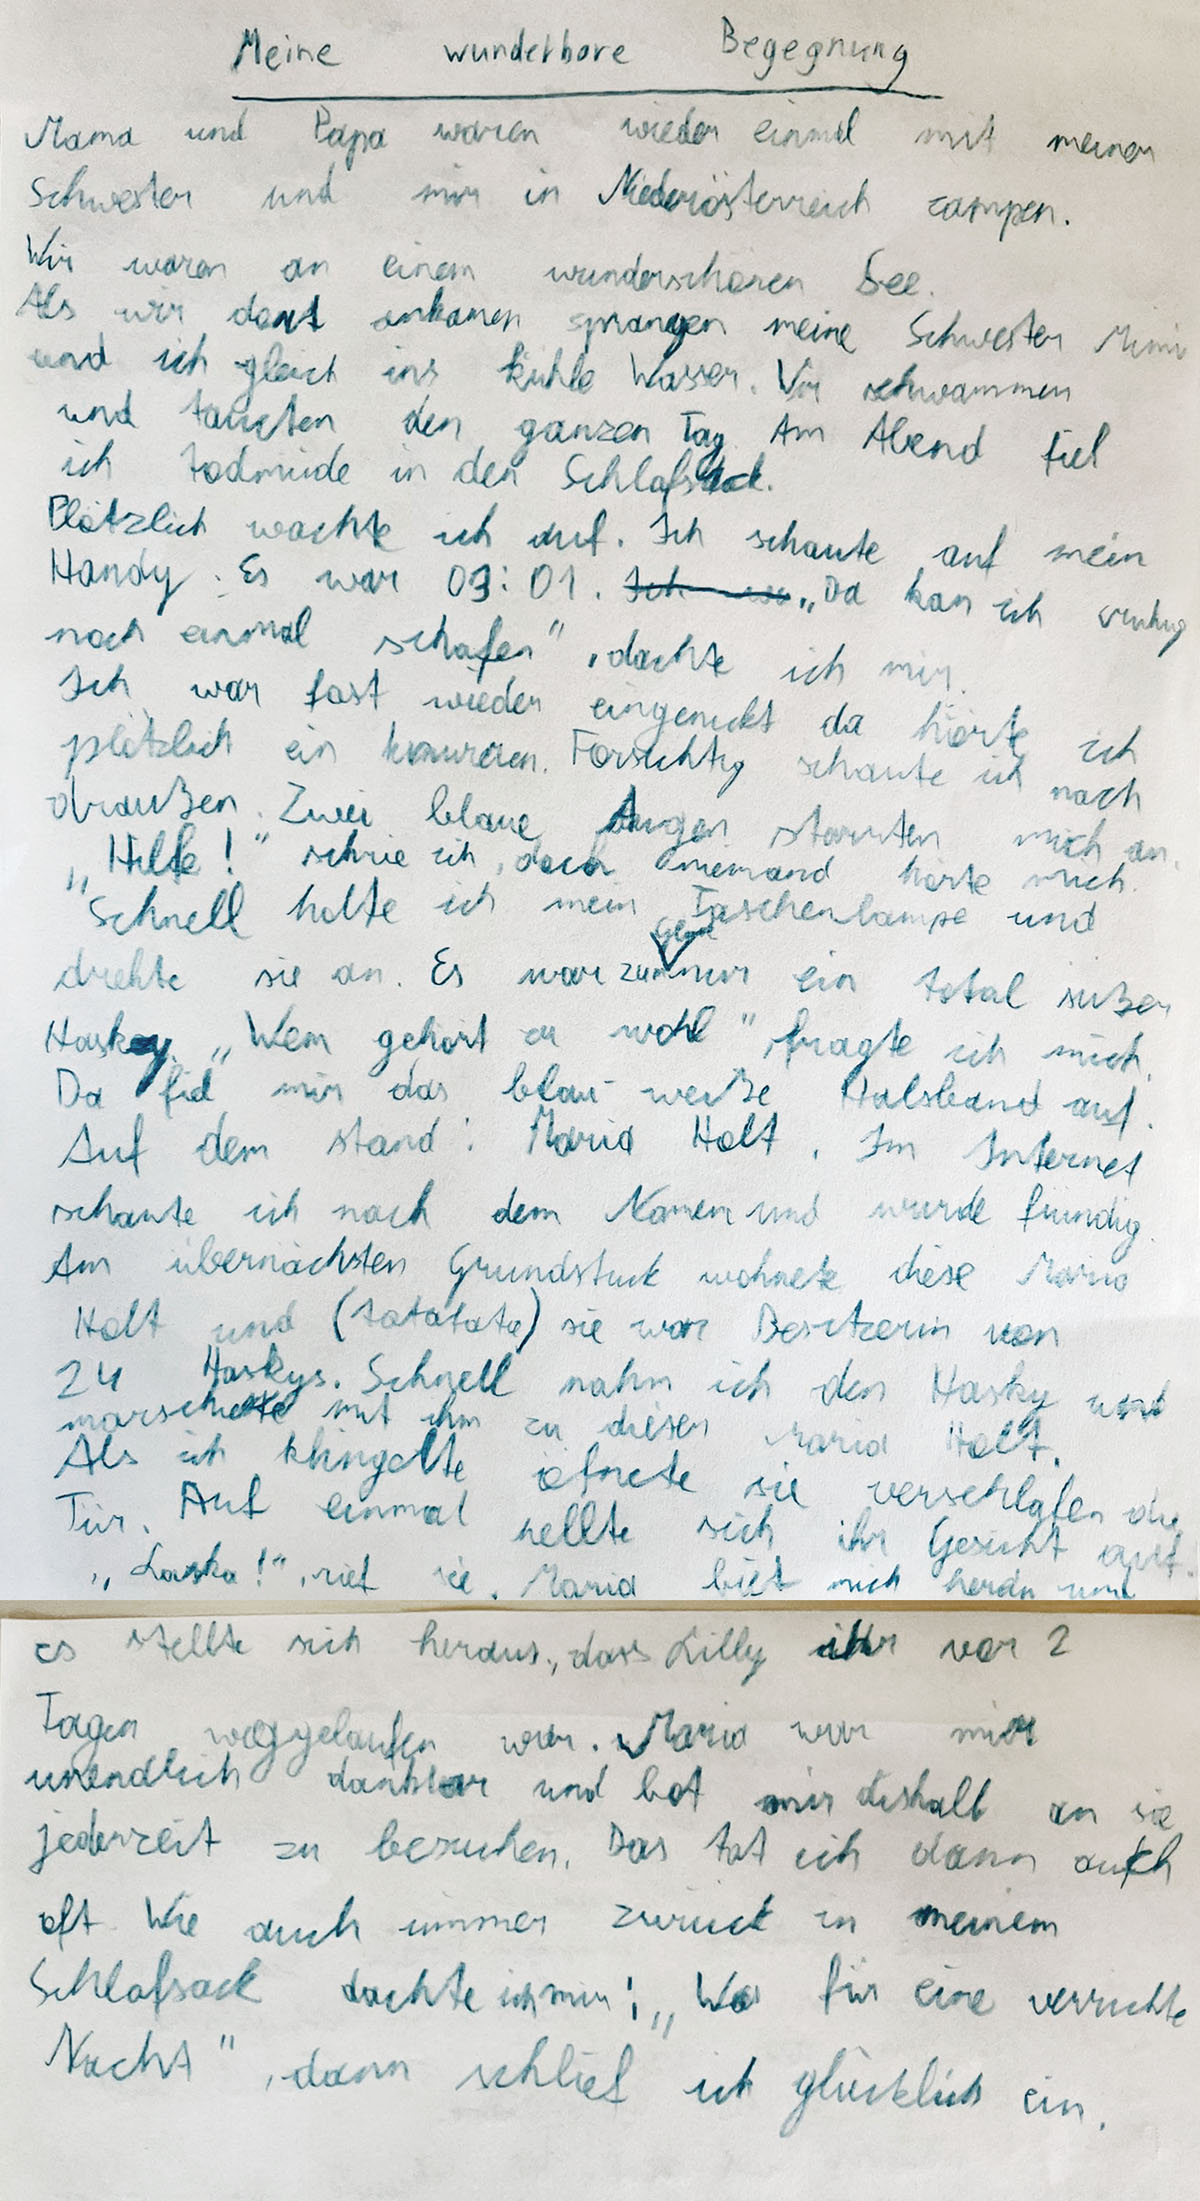 Meine wunderbare Begegnung
Mama und Papa waren wieder einmal mit meiner
Schwester und mir in Niederösterreich campen.
Wir waren an einem wunderschönen See.
Als wir dort ankamen sprangen meine Schwester Mimi
und ich gleich ins kühle Wasser. Wir schwammen
und tauchten den ganzen Tag. Am Abend fiel
ich todmüde in den Schlafsack.
Plötzlich wachte ich auf. Ich schaute auf mein
Handy. Es war 03:01. „Da kan ich ruhig
noch einmal schafen", dachte ich mir.
Ich war fast wieder eingenickt da hörte ich
plötzlich ein knurren. Forsichtig schaute ich nach
draußen. Zwei blaue Augen starrten mich an.
„Hilfe!" schrie ich, doch niemand hörte mich.
Schnell holte ich mein Taschenlampe und
drehte sie an. Es war zum Glück nur ein total süßer
Hasky. „Wem gehört er wohl", fragte ich mich.
Da fiel mir das blau-weiße Halsband auf.
Auf dem stand: Maria Holt. Im Internet
schaute ich nach dem Namen und wurde fündig.
Am übernächsten Grundstück wohnete diese Maria
Holt und (tatatata) sie war Besitzerin von
24 Haskys. Schnell nahm ich den Hasky und
marschierte mit ihm zu dieser Maria Holt.
Als ich klingelte öfnete sie verschlafen die
Tür. Auf einmal hellte sich ihr Gesicht auf.
„Laska!", rief sie. Maria biet mich herein und
es stellte sich heraus, dass Lilly ihr vor 2
Tagen weggelaufen war. Maria war mir
unendlich dankbar und bot mir deshalb an sie
jederzeit zu besuchen. Das tat ich dann auch
oft. Wie auch immer zurück in meinem
Schlafsack dachte ich mir: „Was für eine verrückte
Nacht", dann schlief ich glücklich ein.